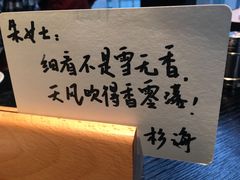 朱女士：
细看不是雪无香，
天风吹得香零落！
杉海